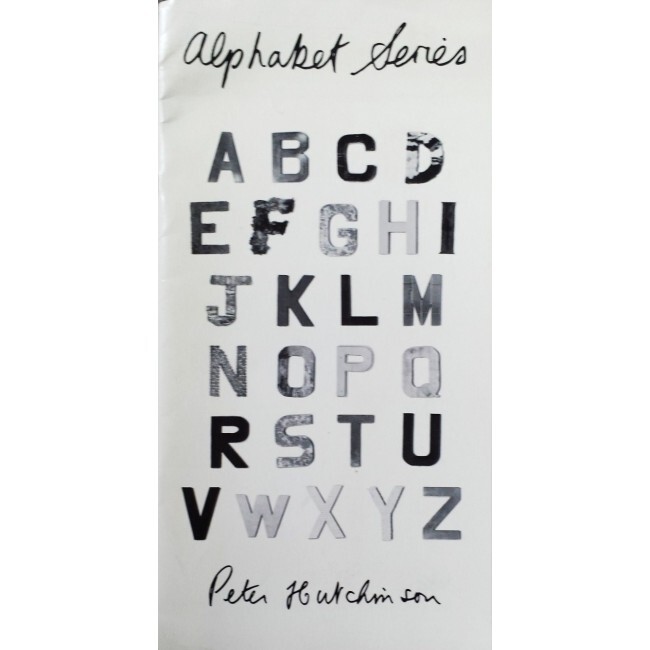 Alphabet Series
A B C D
E F G H I
J K L M
N O P Q
R S T U
V W X Y Z
Peter Hutchinson